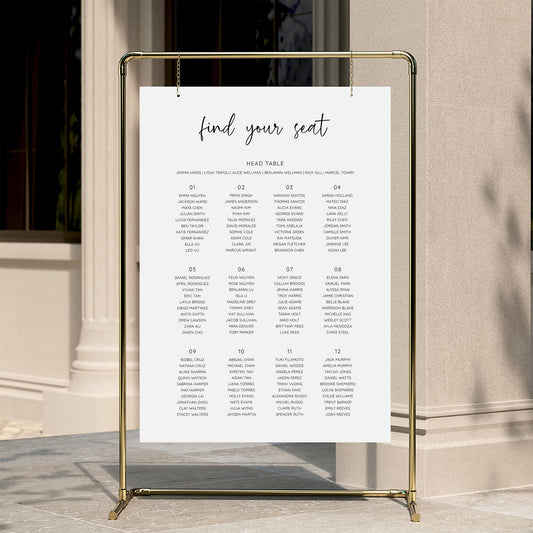 find your seat
HEAD TABLE
JEMMA HINDS | LYDIA TRIPOLI | ALICE WELLMAN | BENJAMIN WELLMAN | RICK GILL | MARCEL TOWRY
01
EMMA NGUYEN
JACKSON WARD
MAYA CHEN
JULIAN SMITH
LUCIA FERNANDEZ
BEN TAYLOR
KATIE FERNANDEZ
OMAR KHAN
ELLA VU
LEO VU
02
PRIYA SINGH
JAMES ANDERSON
NAOMI KIM
RYAN KIM
TALIA MORALES
DAVID MORALES
SOPHIE COLE
ADAM COLE
CLARA JIN
MARCUS WRIGHT
03
HANNAH SANTOS
THOMAS SANTOS
ALICIA EVANS
GEORGE EVANS
YARA HADDAD
TOM ADELAJA
VICTORIA GREEN
KAI MATSUDA
MEGAN FLETCHER
BRANDON CHEN
04
SARAH HOLLAND
MATEO DIAZ
NINA DIAZ
LARA KELLY
RILEY CHO
JORDAN SMITH
CAMILLE SMITH
OLIVER SIMS
JASMINE LEE
NOAH LEE
05
DANIEL RODRIGUEZ
APRIL RODRIGUEZ
VIVIAN TAN
ERIC TAN
LAYLA BRIGGS
DIEGO MARTINEZ
ANITA GUPTA
DREW LAWSON
ZARA ALI
OWEN CHO
06
FELIX NGUYEN
ROSE NGUYEN
BENJAMIN LI
ISLA LI
MADELINE GREY
TOMMY GREY
KAT SULLIVAN
JACOB SULLIVAN
MIRA DENVER
TOBY PARKER
07
NICKY GRACE
CALLUM BROOKS
JENNA HARRIS
TROY HARRIS
JULIE ADAMS
SEAN ADAMS
TASHA HOLT
NIKO HOLT
BRITTANY REES
LUKE REES
08
ELENA PARK
SAMUEL PARK
ALYSSA RYAN
JAMIE CHRISTIAN
BELLE BLAKE
HARRISON BLAKE
MICHELLE KAO
WESLEY SCOTT
AYLA MENDOZA
CHRIS STEEL
09
ISOBEL CRUZ
NATHAN CRUZ
ALINA SHARMA
QUINN WATSON
SABRINA HARPER
MAX HARPER
GEORGIA LAI
JONATHAN ZHOU
CLAY WALTERS
STACEY WALTERS
10
ABIGAIL CHAN
MICHAEL CHAN
KIRSTEN TAN
AIDAN TAN
LIANA TORRES
PABLO TORRES
HOLLY EVANS
NATE EVANS
JULIA WONG
JAYDEN MARTIN
11
YUKI FUJIMOTO
DANIEL WOODS
ANGELA PEREZ
JASON PEREZ
TRINH VUONG
ETHAN KING
ALEXANDRA RUSSO
MICHEL RUSSO
CLAIRE RUTH
SPENCER RUTH
12
JACK MURPHY
AMELIA MURPHY
TAYLAH JONES
DANIEL WATTS
BROOKE SHEPHERD
LUCAS SHEPHERD
CHLOE WILLIAMS
TRENT BARKER
EMILY REEVES
JOSH REEVES